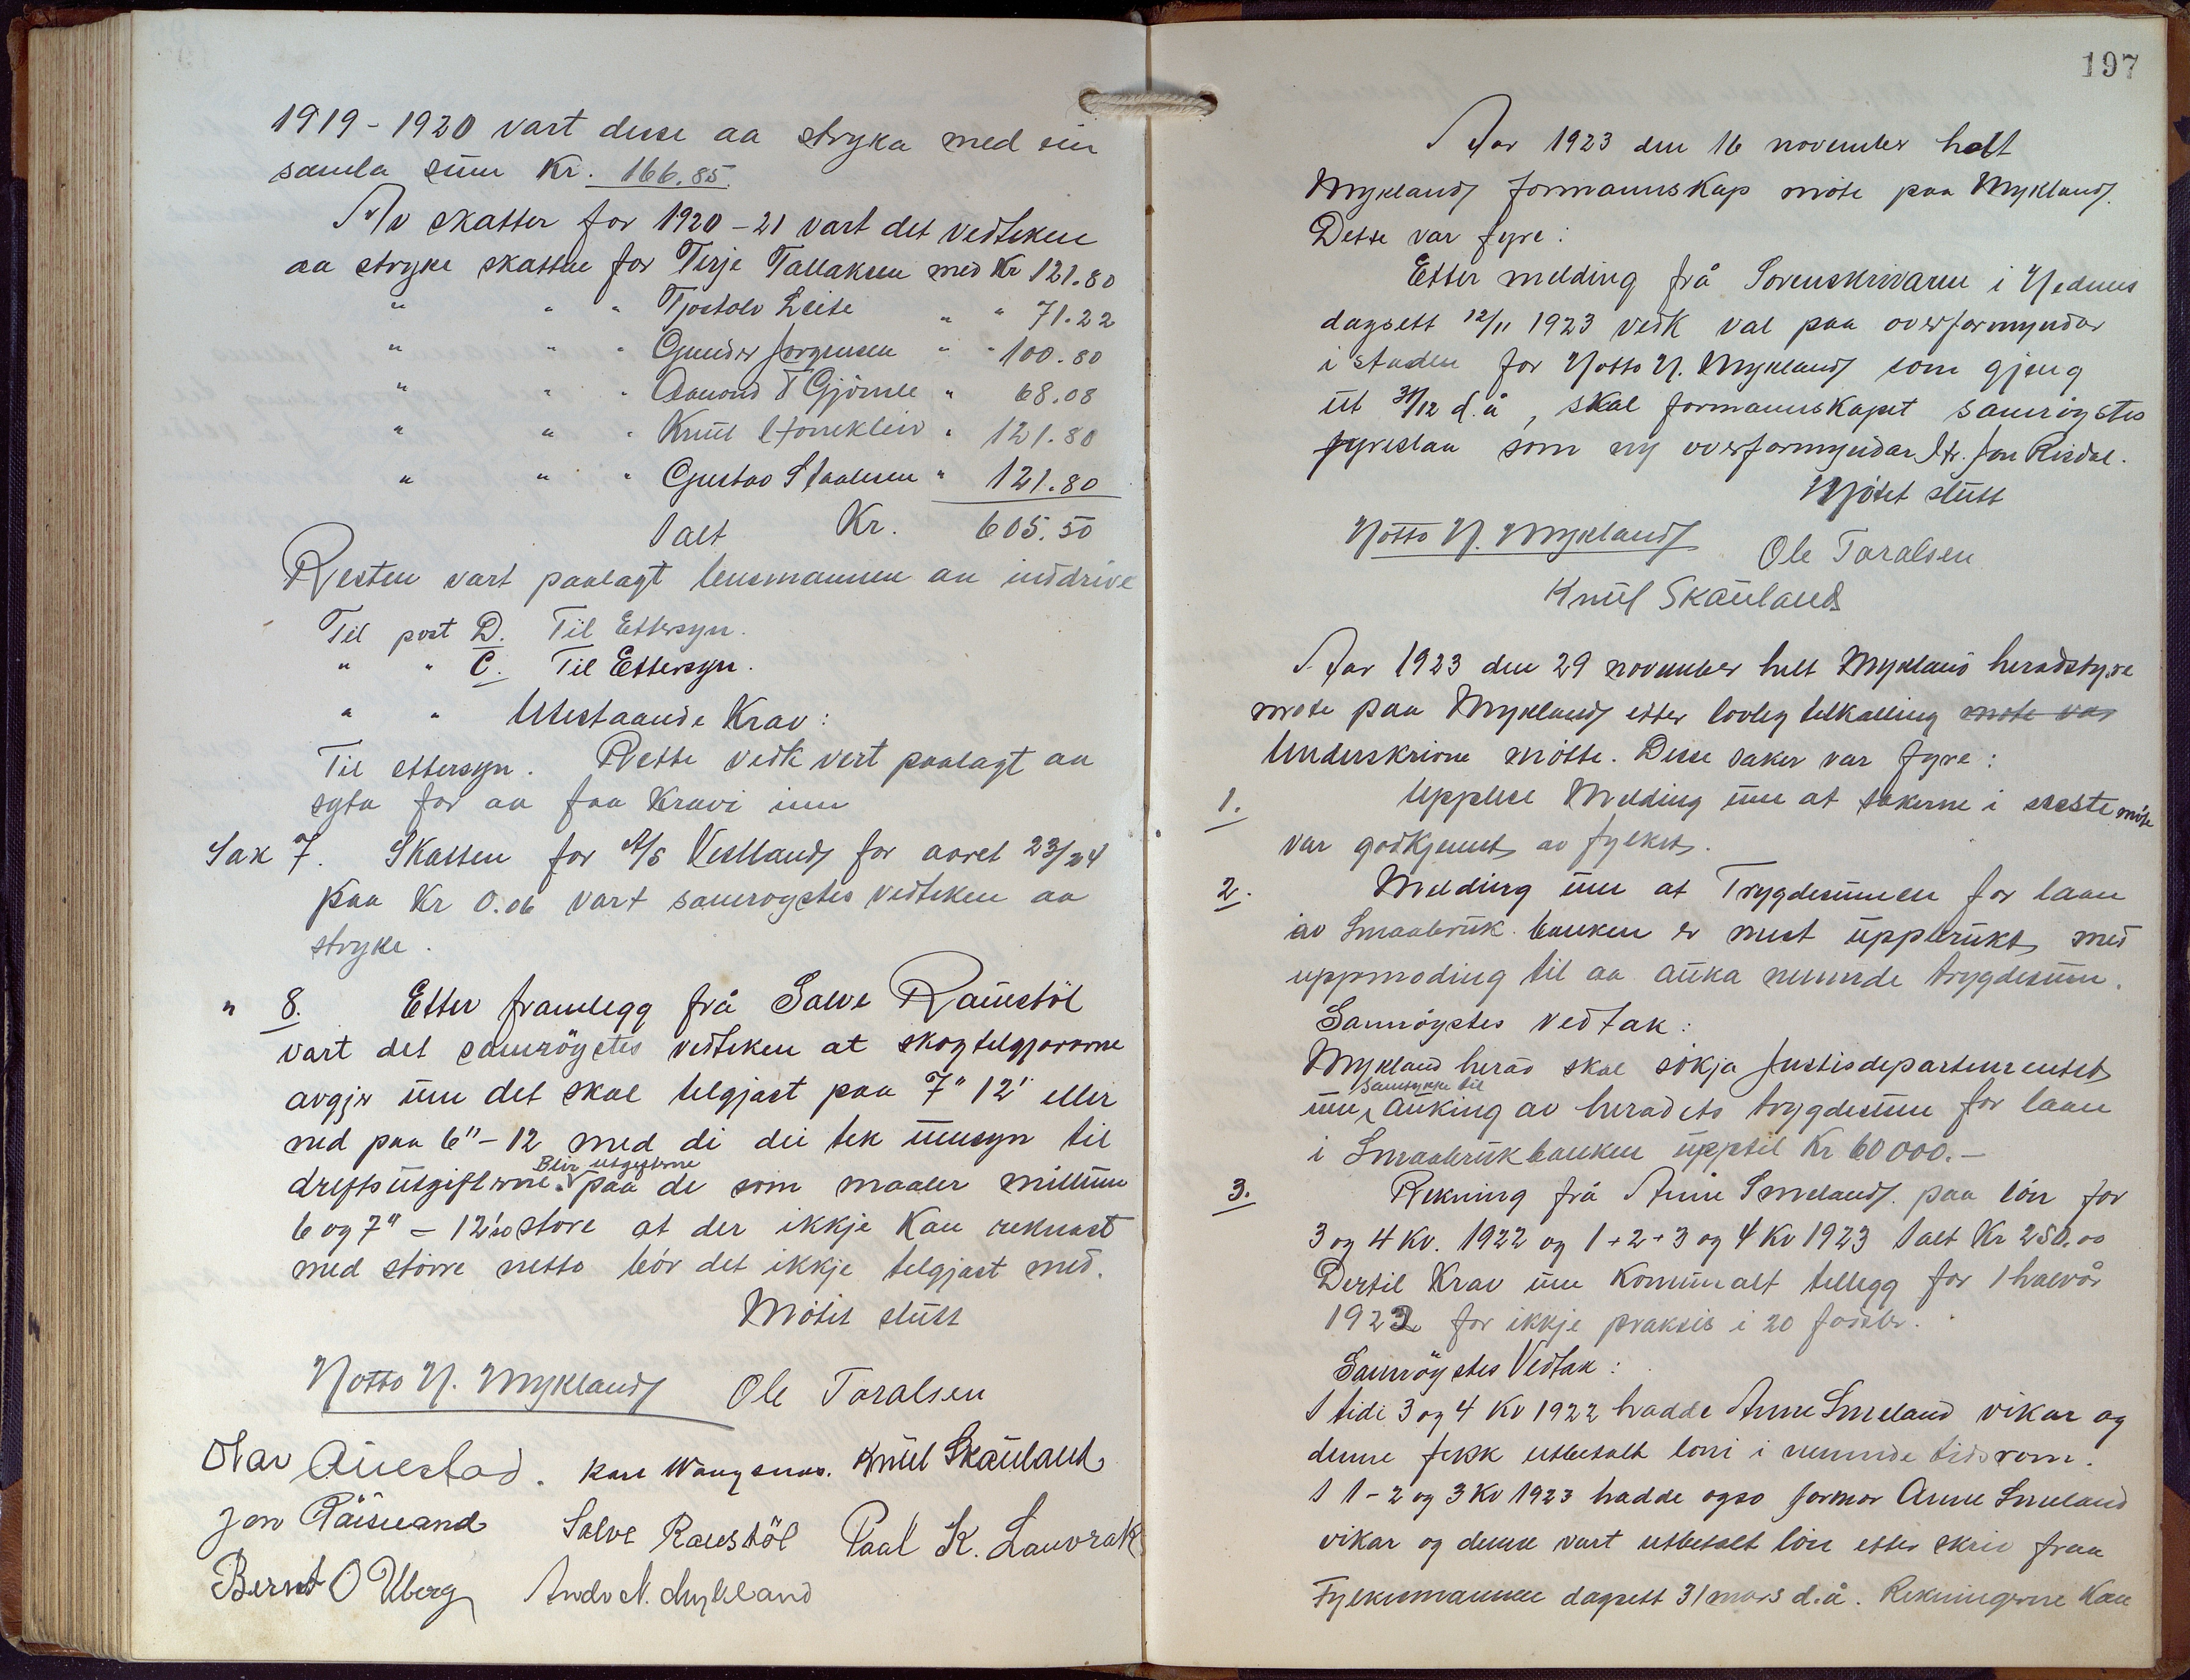 1919-1920 vart desse aa stryka med ein
samla sum Kr. 166.85.
Av skatter for 1920-21 vart det vedteken
aa stryke skattne for Terje Tallaksen med Kr 121.80
" " " Tjostolv Leite " " 71.22
" " " Gunder Jørgensen " " 100.80
" " " Aamond T Gjömle " 68.08
" " " Knut " 121.80
" " " Gustav Staalesen " 121.80
Ialt Kr. 605.50
Resten vart paalagt lensmannen aa inddrive
Til post D. Til Ettersyn.
" " C. Til Ettersyn.
" " Utestaande Krav:
Til ettersyn. Rette vedk vert paalagt aa
syta for aa faa Kravi inn
Sak 7. Skatten for A/S Vestland for aaret 23/24
paa Kr 0.06 vart samrøystes vedteken aa
stryke.
" 8. Etter framlegg frå Salve Raustöl
vart det samröystes vedteken at skogtelgjararne
avgjer um det skal telgjast paa 7" 12' eller
ned paa 6"-12 med di dei tek umsyn til
Blir utgifterne
driftsutgifterne. paa de som maaler millum
6 og 7" - 12' so store at der ikkje kan reknast
med större netto bör det ikkje telgjast med.
Mötet slutt
Notto N. Mykland Ole Taralsen
Olav Auestad. Knut Skauland
Jon Salve Raustöl Paal K. Lauvrak
Bernt O Uberg Andr N. Mykland
197
Aar 1923 den 16 november helt
Mykland formannskap möte paa Mykland.
Dette var fyre:
Etter melding frå Sorenskrivaren i Nedenes
dagsett 12/11 1923 vedk val paa overformyndar
i staden for Notto N. Mykland som gjeng
ut 31/12 d.å, skal formannskapet samröystes
fyreslaa som ny overformyndar Hr. Jon Risdal.
Mötet slutt
Notto N. Mykland Ole Taralsen
Knut Skauland
Aar 1923 den 29 november helt Mykland heradstyre
möte paa Mykland etter lovleg telkalling møte var
Underskrivne mötte. Desse saker var fyre:
1. Upplese Melding um at sakerne i siste möte
var godkjennt av fylket.
2. Melding um at Trygdesummen for laan
av Smaabruk banken er mest uppbrukt med
uppmoding til aa auka nemnde trygdesum.
Samröystes vedtak:
Mykland herad skal sökja Justisdepartementet
Samtykke til
um auking av heradets trygdesum for laan
i Smaabrukbanken upptil Kr 60 000.-
3. Rekning frå Anne Smeland paa lön for
3 og 4 Kv. 1922 og 1+2+3 og 4 Kv 1923 Ialt Kr 250.00
Dertil Krav um Komunalt tellegg for 1 halvår
1923 for ikkje praksis i 20 födsler.
Samröystes Vedtak:
I tidi 3 og 4 Kv 1922 hadde Anne Smeland vikar og
denne fekk utbetalt löni i nemnde tidsrom.
I 1-2 og 3 Kv 1923 hadde ogso jormor Anne Smeland
vikar og denne vart utbetalt lön etter skriv fraa
Fylkesmannen dagsett 31 mars d.å. Rekningerne kan